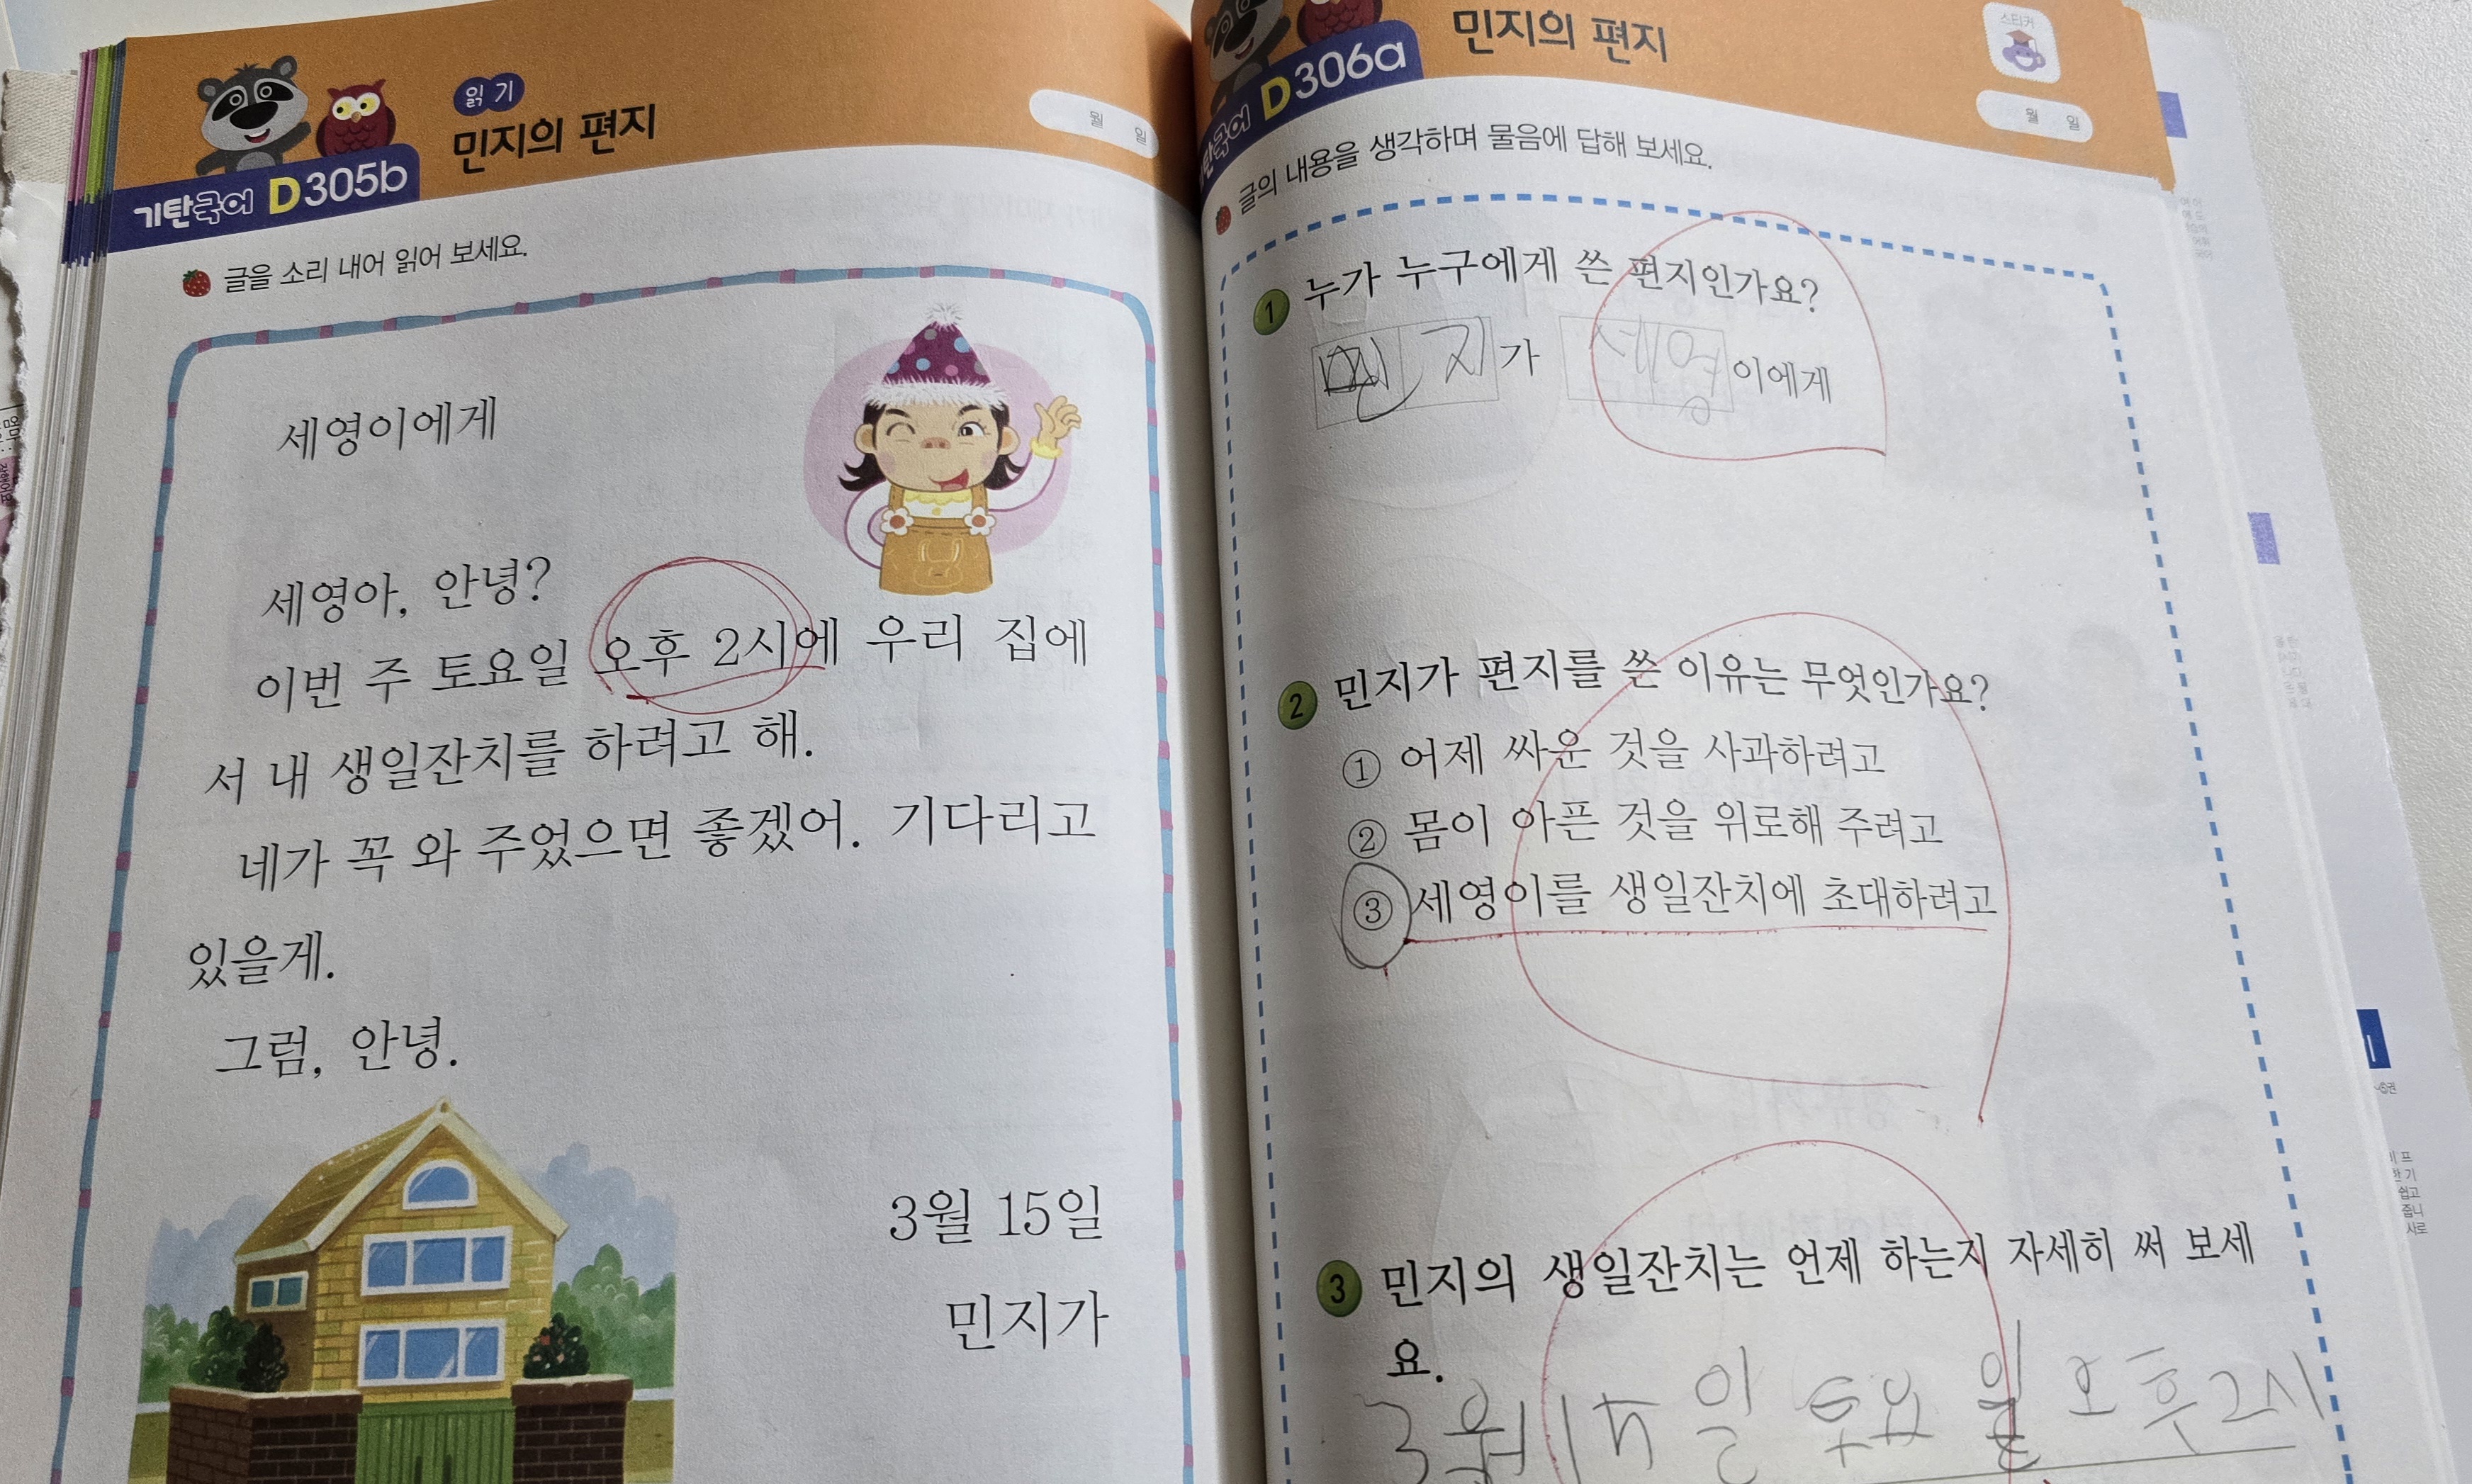 읽기
민지의 편지
월 일
기탄국어 D305b
글을 소리 내어 읽어 보세요.
세영이에게
세영아, 안녕?
이번 주 토요일 오후 2시에 우리 집에
서 내 생일잔치를 하려고 해.
네가 꼭 와 주었으면 좋겠어. 기다리고
있을게.
그럼, 안녕.
3월 15일
민지가
민지의 편지
스티커
월 일
기탄국어 D306a
글의 내용을 생각하며 물음에 답해 보세요.
1 누가 누구에게 쓴 편지인가요?
민지가 세영이에게
2 민지가 편지를 쓴 이유는 무엇인가요?
① 어제 싸운 것을 사과하려고
② 몸이 아픈 것을 위로해 주려고
③ 세영이를 생일잔치에 초대하려고
3 민지의 생일잔치는 언제 하는지 자세히 써 보세
요.
3월 15일 토요일 오후 2시